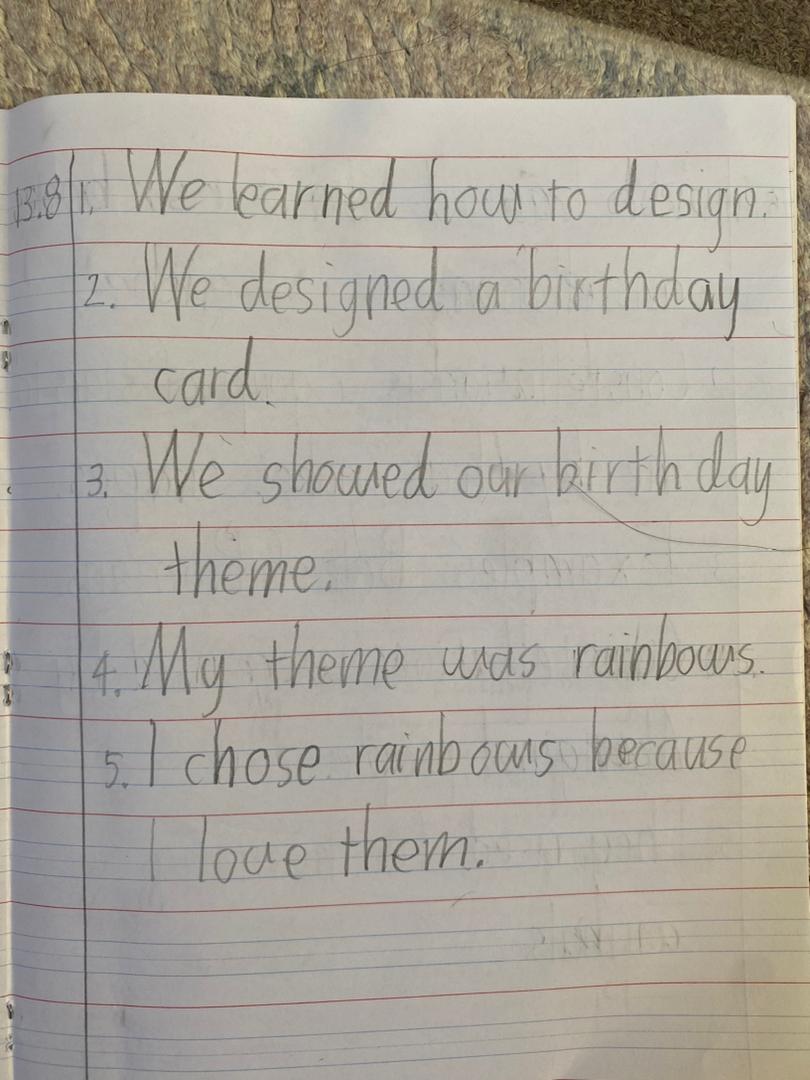 13.8 1. We learned how to design.
2. We designed a birthday
card.
3. We showed our birthday
theme.
4. My theme was rainbows.
5. I chose rainbows because
I love them.